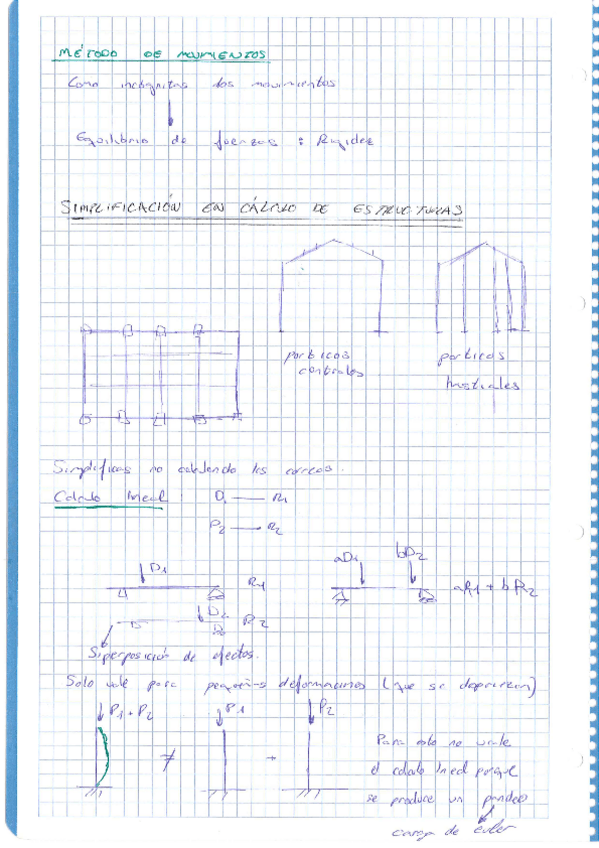 MÉTODO DE MOVIMIENTOS
Como incógnitas los movimientos
Equilibrio de fuerzas : Rigidez
SIMPLIFICACIÓN EN CÁLCULO DE ESTRUCTURAS
porticos
centrales
porticos
hastiales
Simplificas no calculando las correas.
Calculo lineal D1 — R1
P2 — R2
D1 R1
aD1 bD2 aR1 + bR2
D2 R2
Superposición de efectos.
Solo vale para pequeñas deformaciones (que se deprecien)
P1 + P2 ≠ P1 + P2
Para esto no vale
el calculo lineal porque
se produce un pandeo
carga de euler